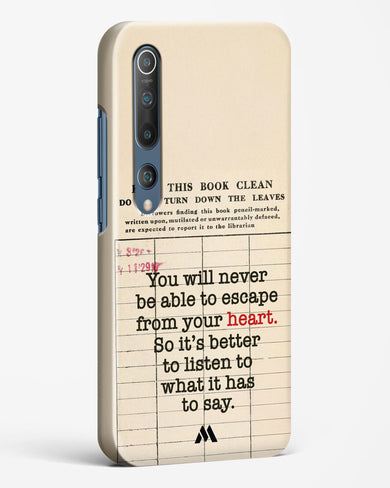 THIS BOOK CLEAN
DO TURN DOWN THE LEAVES
finding this book pencil-marked,
written upon, mutilated or unwarrantably defaced,
are expected to report it to the librarian
You will never
be able to escape
from your heart.
So it's better
to listen to
what it has
to say.